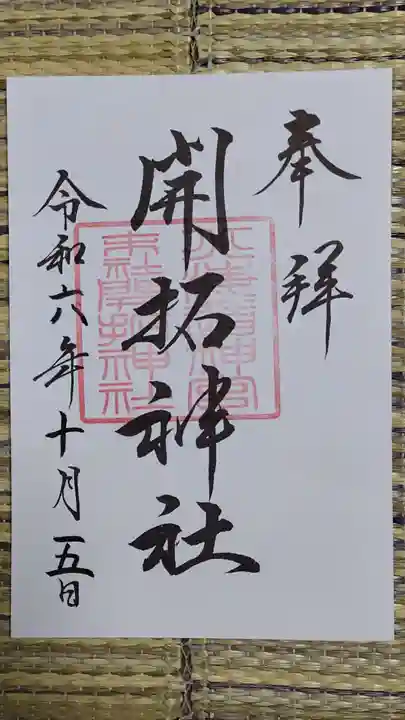 奉拝
開拓神社
令和六年十月一五日
末社開拓神社